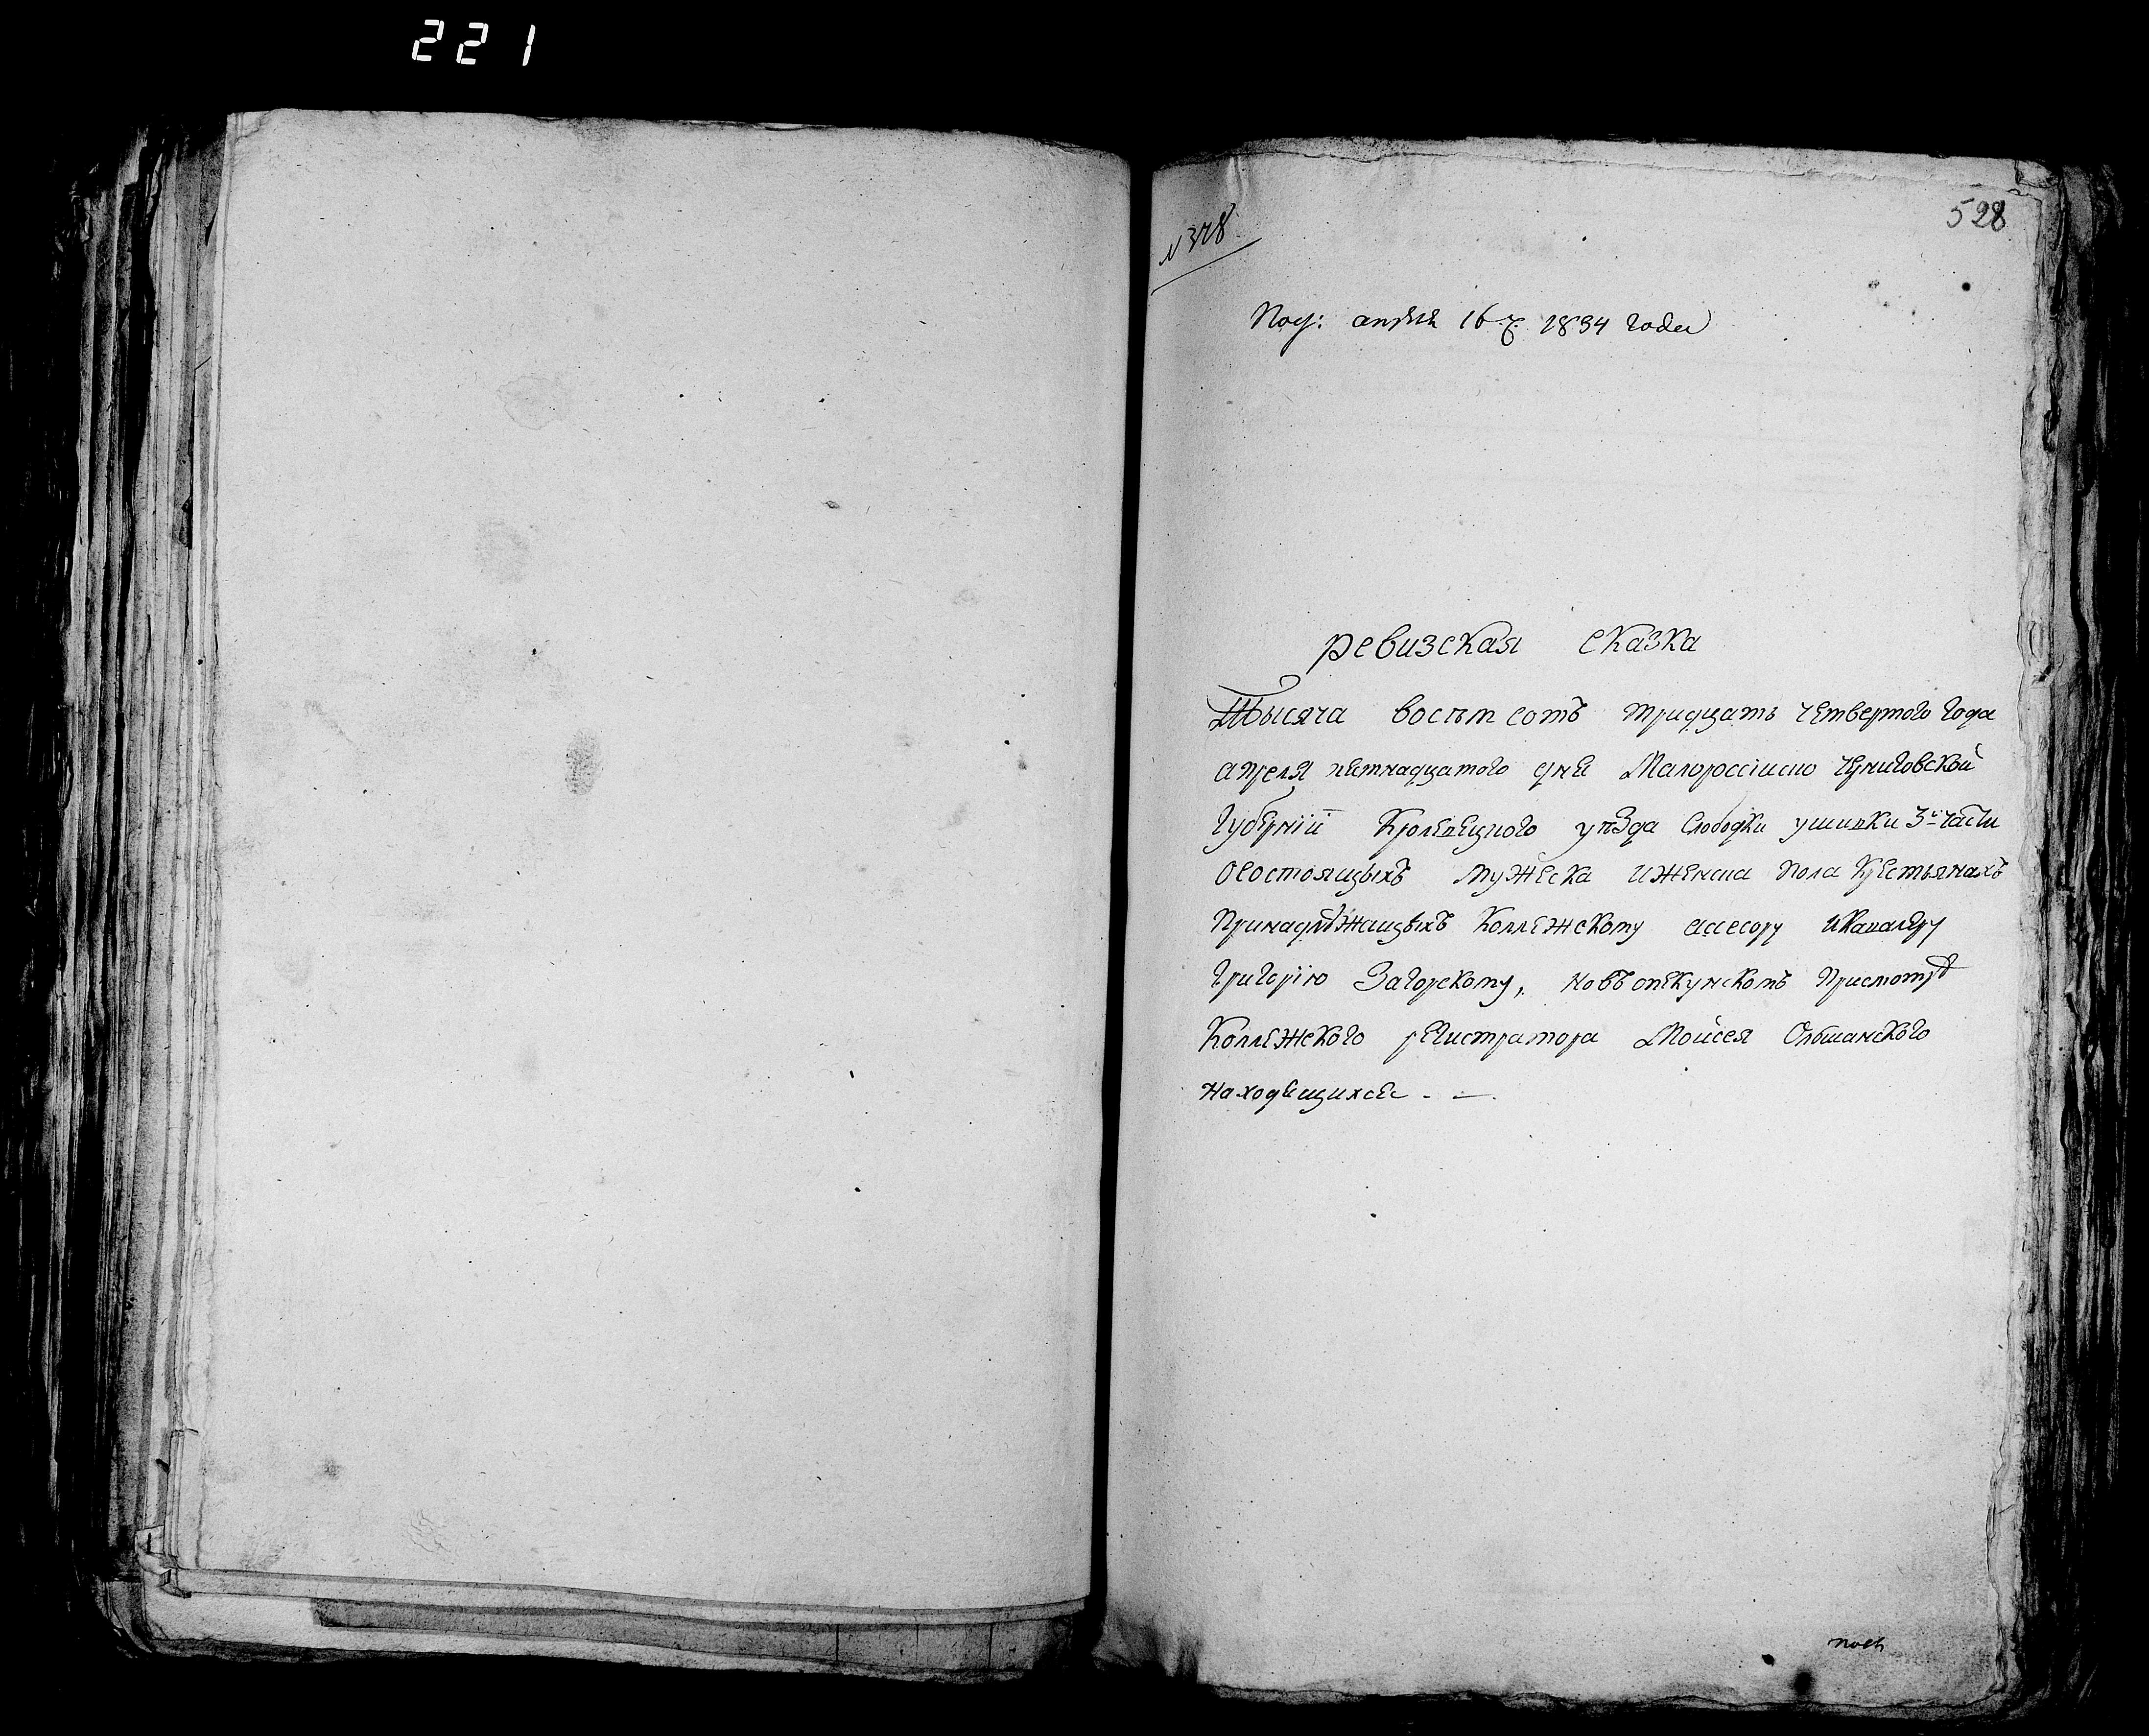 221
528
N 378
Пол: апреля 16 г. 1834 года
ревизская сказка
Тысяча восьм сотъ тридцать четвертого года
апреля петнадцатого дне Малороссиско черниговской
Губернiй Кролевецкого уезда Слободки ушивки 3й части
осостоящыхъ мужеска иженска пола крестьянахъ
Принадлѣжащыхъ Коллежскому асесору икавалеру
Григорiю Загорскому, новъ опекунскомъ присмотрѣ
Коллежского регистратора Мойсея Олбшанского
находещихсе - —